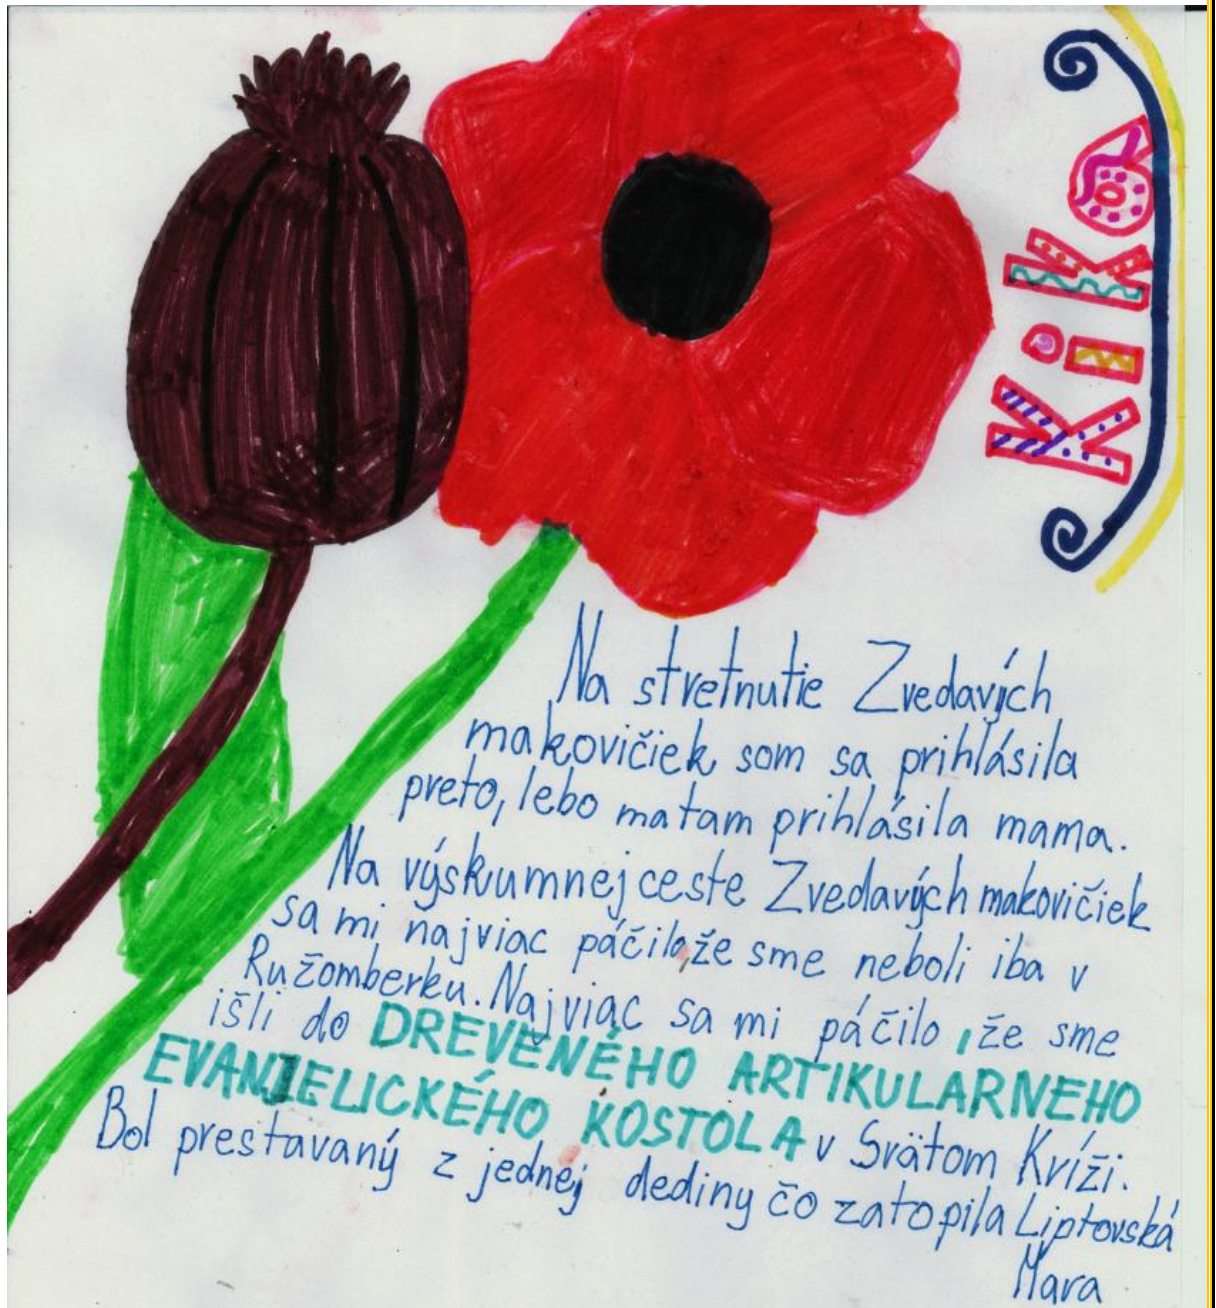 Kika
Na stretnutie Zvedavých
makovičiek som sa prihlásila
preto, lebo ma tam prihlásila mama.
Na výskumnej ceste Zvedavých makovičiek
sa mi najviac páčilo,že sme neboli iba v
Ružomberku. Najviac sa mi páčilo ,že sme
išli do DREVENÉHO ARTIKULARNEHO
EVANJELICKÉHO KOSTOLA v Svätom Kríži.
Bol prestavaný z jednej dediny čo zatopila Liptovská
Mara